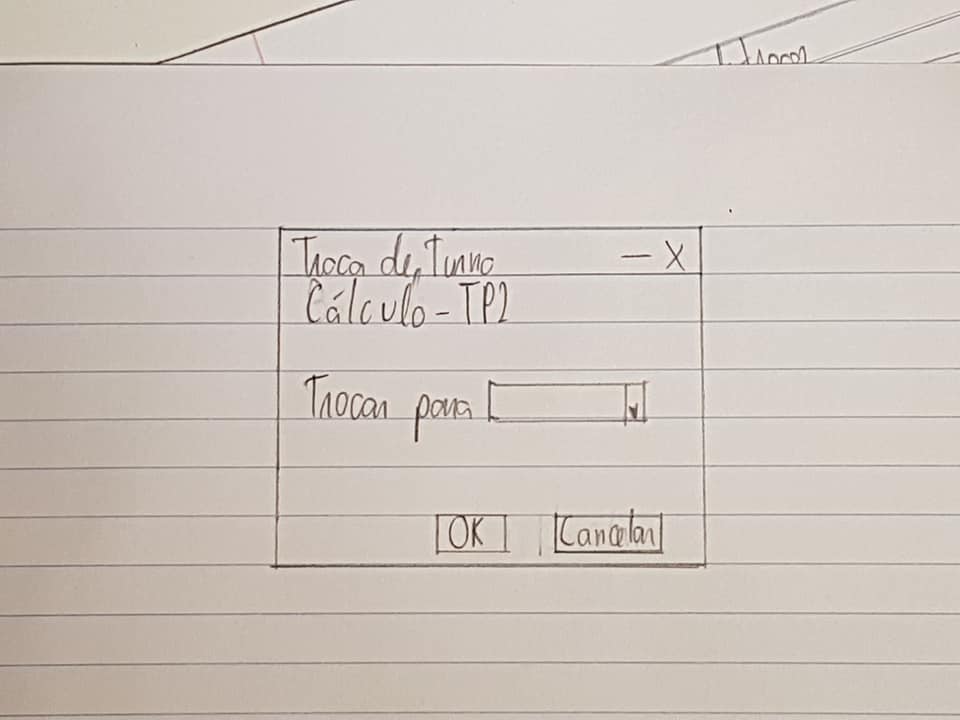 Troca de Turno — X
Cálculo - TP2
Trocar para
OK Cancelar